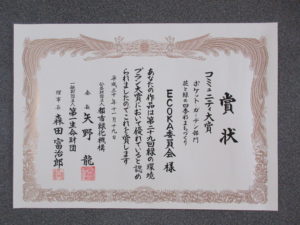 賞状
コミュニティ大賞
ポケット・ガーデン部門
花と緑の四季彩まちづくり
ECOKA委員会 様
あなたの作品は第二十九回緑の環境
プラン大賞において優れていると認め
られましたのでこれを賞します
平成三十年十一月十九日
公益財団法人 都市緑化機構
会長 矢野 龍
一般財団法人 第一生命財団
理事長 森田 富治郎